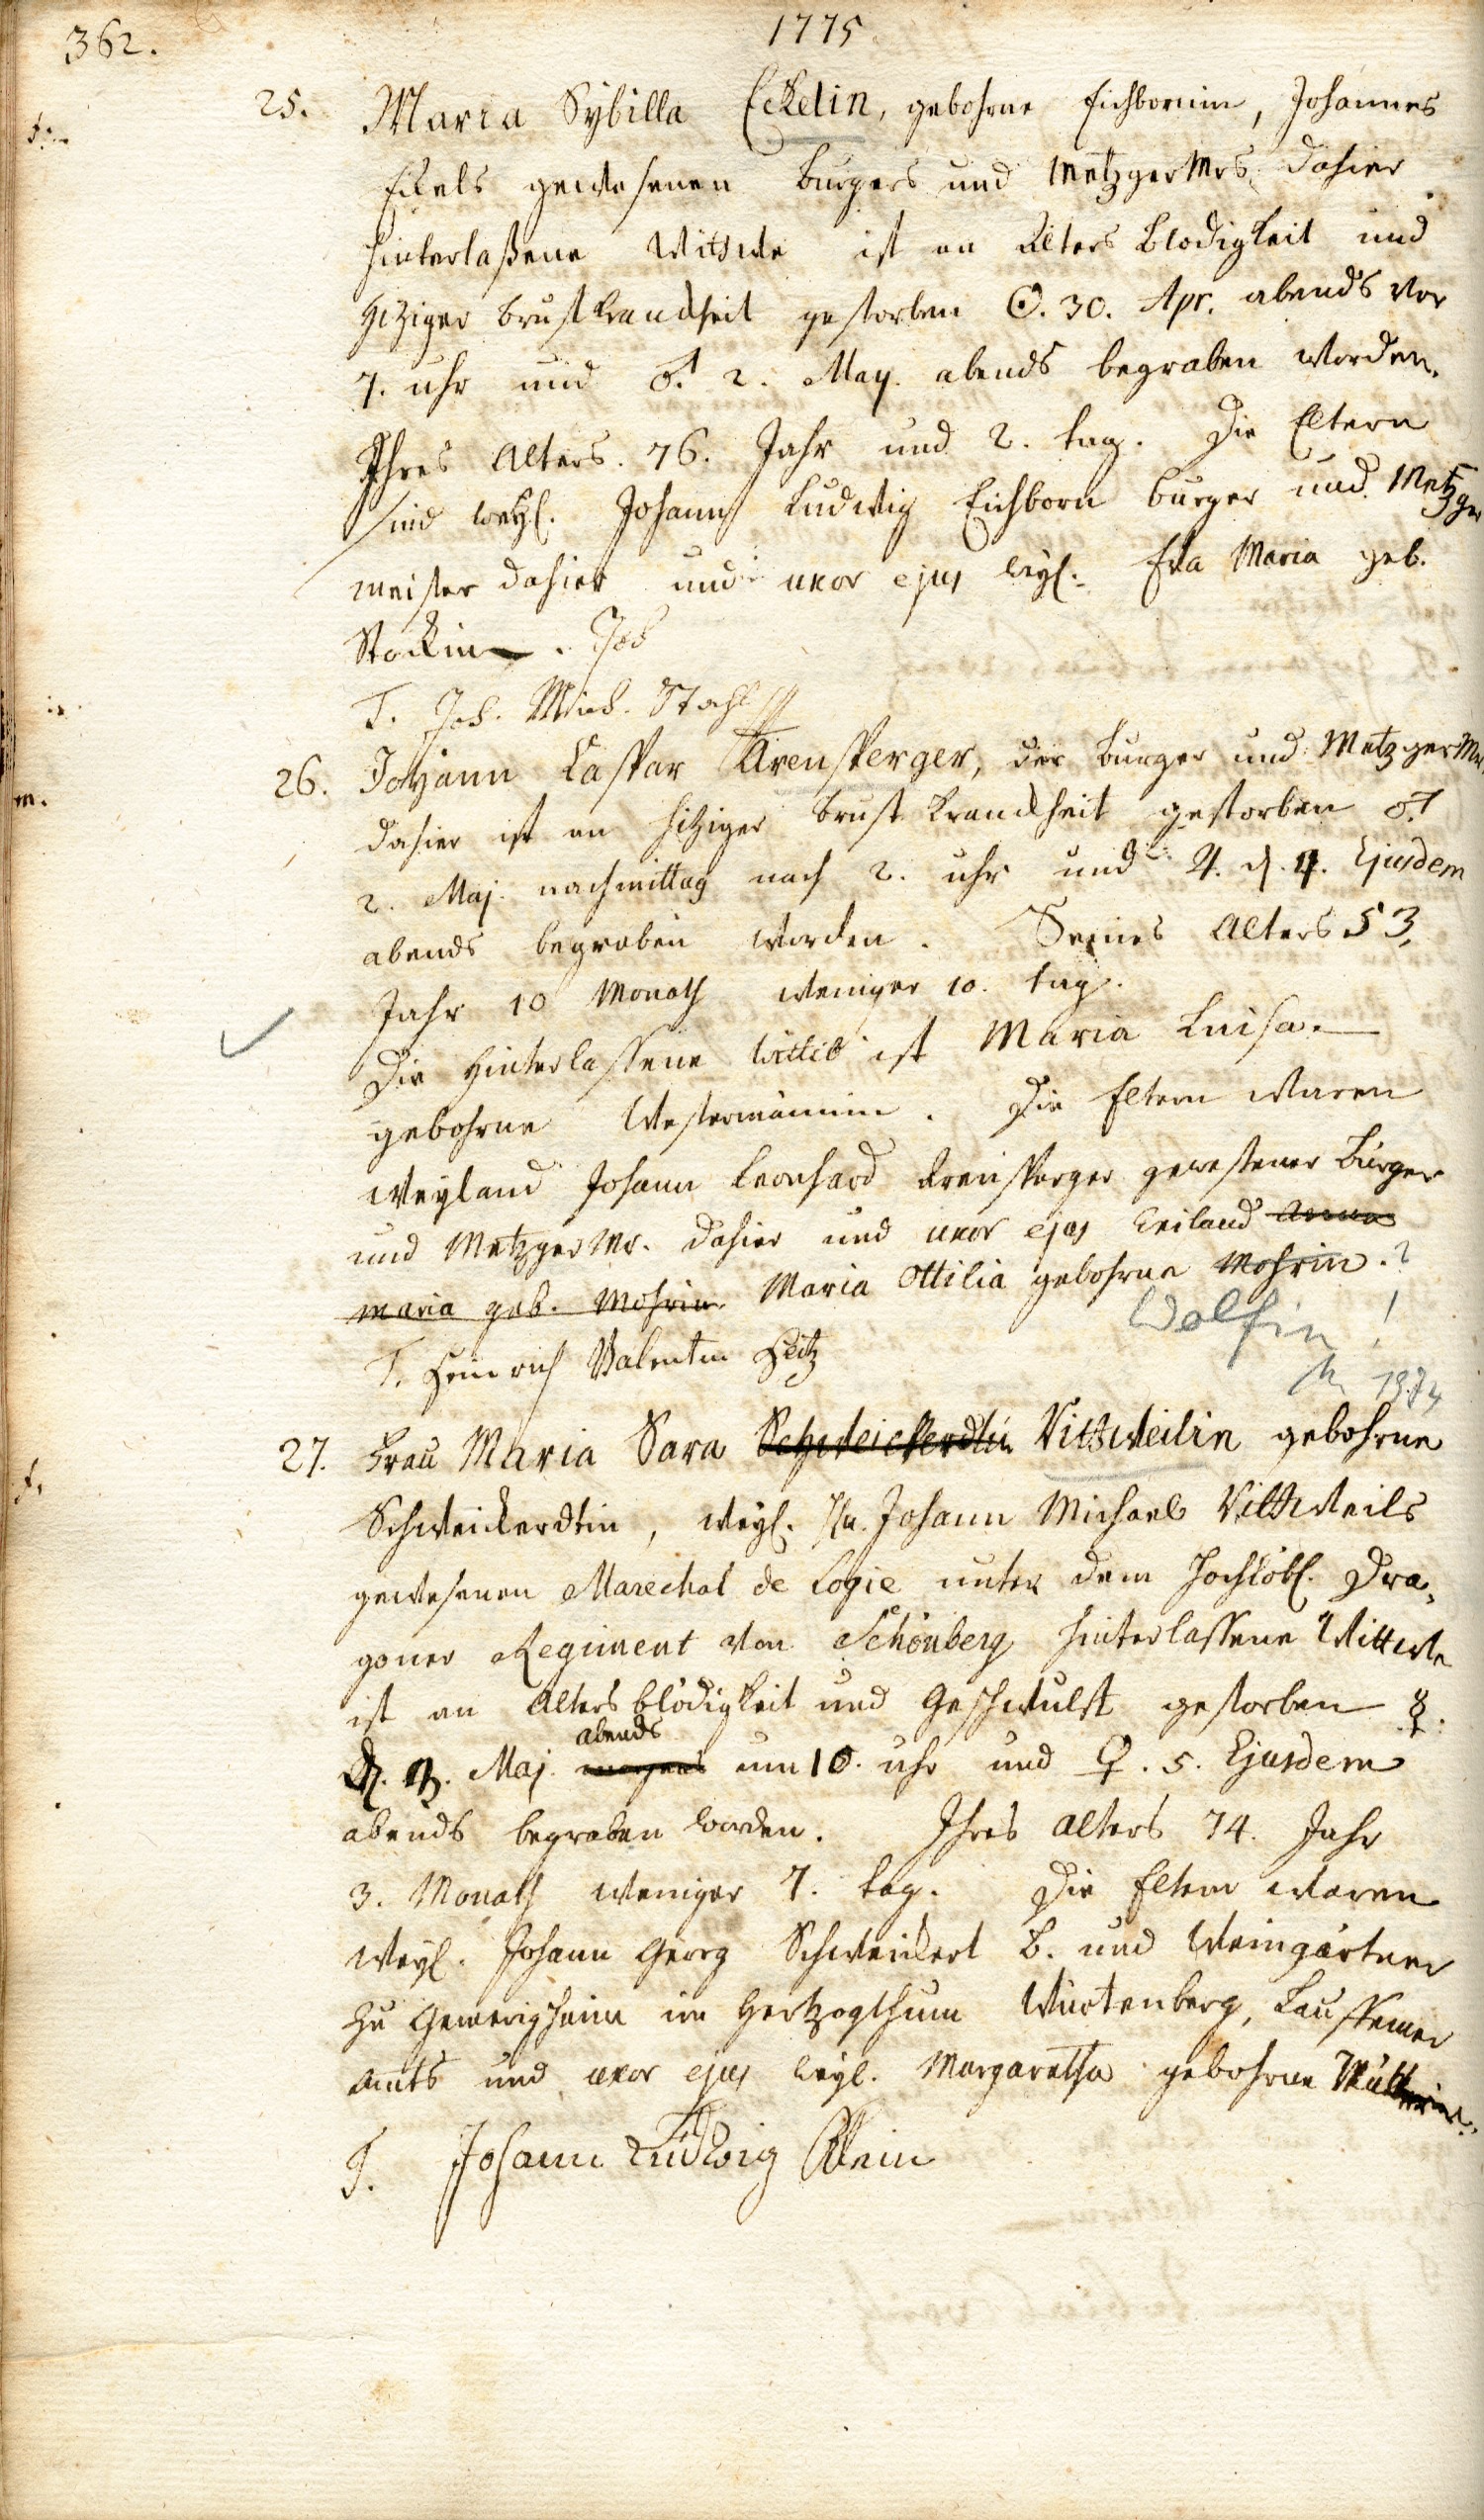 362.
1775
25. Maria Sybilla Eckelin, gebohrne Eichbornin, Johannes
f.
Eckels gewesenen burgers und MetzgerMrs. dahier
hinterlaßene Wittwe ist an Alters blodigkeit und
hiziger brust kranckheit gestorben ☉. 30. Apr. abends vor
7. uhr und ♂. 2. May. abends begraben worden.
Ihres Alters. 76. Jahr und 2. tag. Die Eltern
sind weyl. Johann Ludwig Eichborn burger und Metzger
meister dahier und uxor ejus weyl. Eva Maria geb.
Stöckin. Joh
T. Joh. Mich. Stahl
26. Johann Caspar Arensperger, der burger und MetzgerMr
m.
dahier ist an hitziger brust kranckheit gestorben ♂.
2. Maj. nachmittag nach 2. uhr und ♃. d. 4. Ejusdem
abends begraben worden. Seines Alters 53,
Jahr 10 Monath weniger 10. tag.
Die hinterlassene Wittib ist Maria Luisa
gebohrne Westermännin. Die Eltern waren
Weyland Johann Leonhard Arensperger gewesener bürger
und MetzgerMr. dahier und uxor ejus weiland Anna
Maria geb. Mohrin Maria Ottilia gebohrne Mohrin.?
Wolfin !
1974
T. Heinrich Valentin Seitz
27. Frau Maria Sara Schweickerdtin Vittweilin gebohrne
f.
Schweickerdtin, weyl. Hn. Johann Michael Vittweils
gewesenen Marechal de Logie unter dem Hochlöbl. Dra-
goner Regiment von Schönberg hinterlassene Wittwe
ist an Alters blödigkeit und Geschwulst gestorben ☿.
d. 3. Maj. morgens abends um 10. uhr und ♀. 5. Ejusdem
abends begraben worden. Ihres alters 74. Jahr
3. Monath weniger 7. tag. Die Eltern waren
weyl. Johann Georg Schweickert B. und Weingärtner
zu Gemrigheim im Hertzogthum Würtenberg, Lauffemer
amts und uxor ejus weyl. Margaretha gebohrne
T. Johann Ludwig Klein